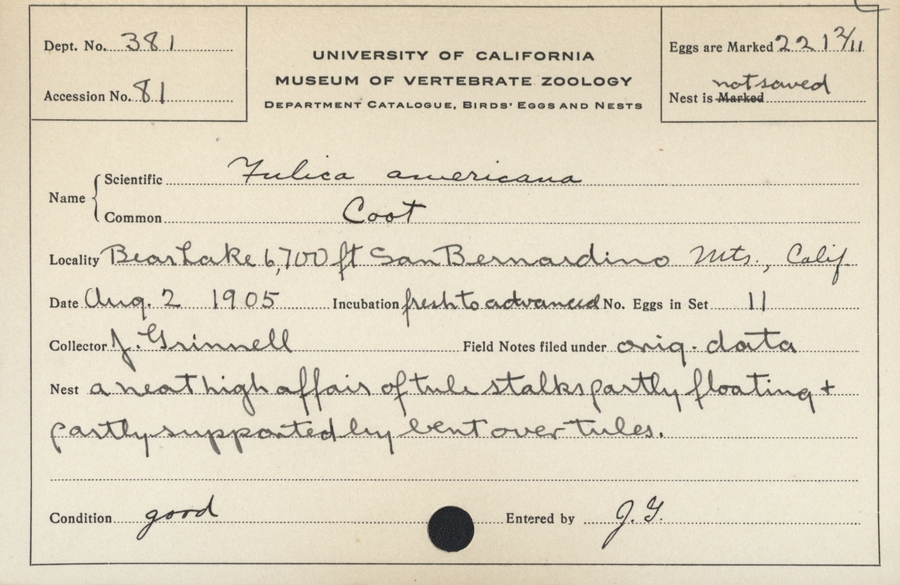 Dept. No. 381
UNIVERSITY OF CALIFORNIA
MUSEUM OF VERTEBRATE ZOOLOGY
DEPARTMENT CATALOGUE, BIRDS' EGGS AND NESTS
Accession No. 81
Eggs are Marked 221 2/11
not saved
Nest is Marked
Name
Scientific Fulica americana
Common Coot
Locality Bear Lake 6,700 ft San Bernardino Mts., Calif.
Date Aug. 2 1905 Incubation fresh to advanced No. Eggs in Set 11
Collector J. Grinnell Field Notes filed under orig. data
Nest a neat high affair of tule stalks partly floating +
partly supported by bent over tules.
Condition good Entered by J. G.